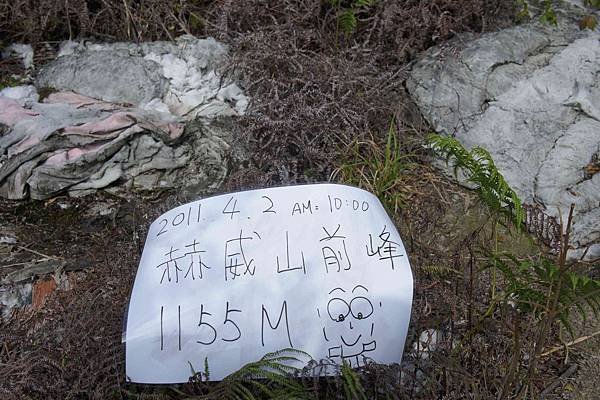 2011. 4. 2 AM: 10:00
赫威山前峰
1155M